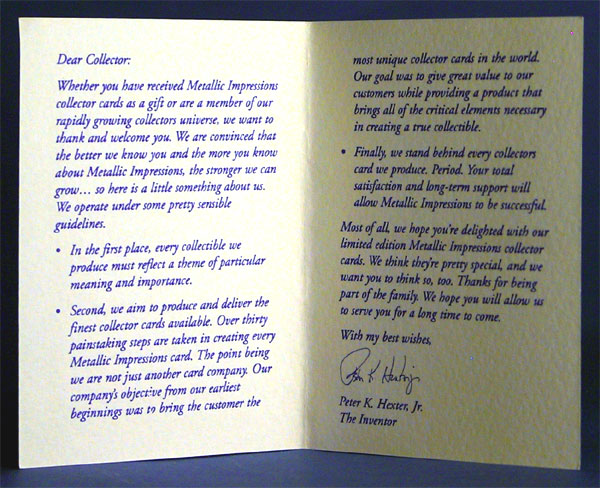 Dear Collector:
Whether you have received Metallic Impressions
collector cards as a gift or are a member of our
rapidly growing collectors universe, we want to
thank and welcome you. We are convinced that
the better we know you and the more you know
about Metallic Impressions, the stronger we can
grow… so here is a little something about us.
We operate under some pretty sensible
guidelines.
• In the first place, every collectible we
produce must reflect a theme of particular
meaning and importance.
• Second, we aim to produce and deliver the
finest collector cards available. Over thirty
painstaking steps are taken in creating every
Metallic Impressions card. The point being
we are not just another card company. Our
company's objective from our earliest
beginnings was to bring the customer the
most unique collector cards in the world.
Our goal was to give great value to our
customers while providing a product that
brings all of the critical elements necessary
in creating a true collectible.
• Finally, we stand behind every collectors
card we produce. Period. Your total
satisfaction and long-term support will
allow Metallic Impressions to be successful.
Most of all, we hope you're delighted with our
limited edition Metallic Impressions collector
cards. We think they're pretty special, and we
want you to think so, too. Thanks for being
part of the family. We hope you will allow us
to serve you for a long time to come.
With my best wishes,
Peter K. Hexter, Jr.
The Inventor